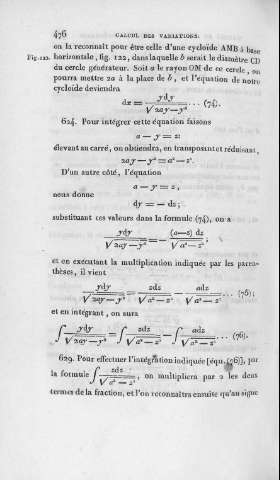 476 CALCUL DES VARIATIONS.
on la reconnaît pour être celle d'une cycloïde AMB à base
Fig. 122. horizontale, fig. 122, dans laquelle b serait le diamètre CD
du cercle générateur. Soit a le rayon ON de ce cercle, on
pourra mettre 2a à la place de b, et l'équation de notre
cycloïde deviendra
dx = ydy / √(2ay—y²) ... (74).
624. Pour intégrer cette équation faisons
a — y = z:
élevant au carré, on obtiendra, en transposant et réduisant,
2ay — y² = a² — z².
D'un autre côté, l'équation
a — y = z,
nous donne
dy = — dz;
substituant ces valeurs dans la formule (74), on a
ydy / √(2ay—y²) = — (a—z) dz / √(a² — z²),
et en exécutant la multiplication indiquée par les parenthèses, il vient
ydy / √(2ay — y²) = zdz / √(a² — z²) — adz / √(a² — z²) ... (75);
et en intégrant, on aura
∫ ydy / √(2ay—y²) = ∫ zdz / √(a² — z²) — ∫ adz / √(a² — z²) ... (76).
629. Pour effectuer l'intégration indiquée [équ. (76)], par
la formule ∫ zdz / √(a² — z²), on multipliera par 2 les deux
termes de la fraction, et l'on reconnaîtra ensuite qu'au signe